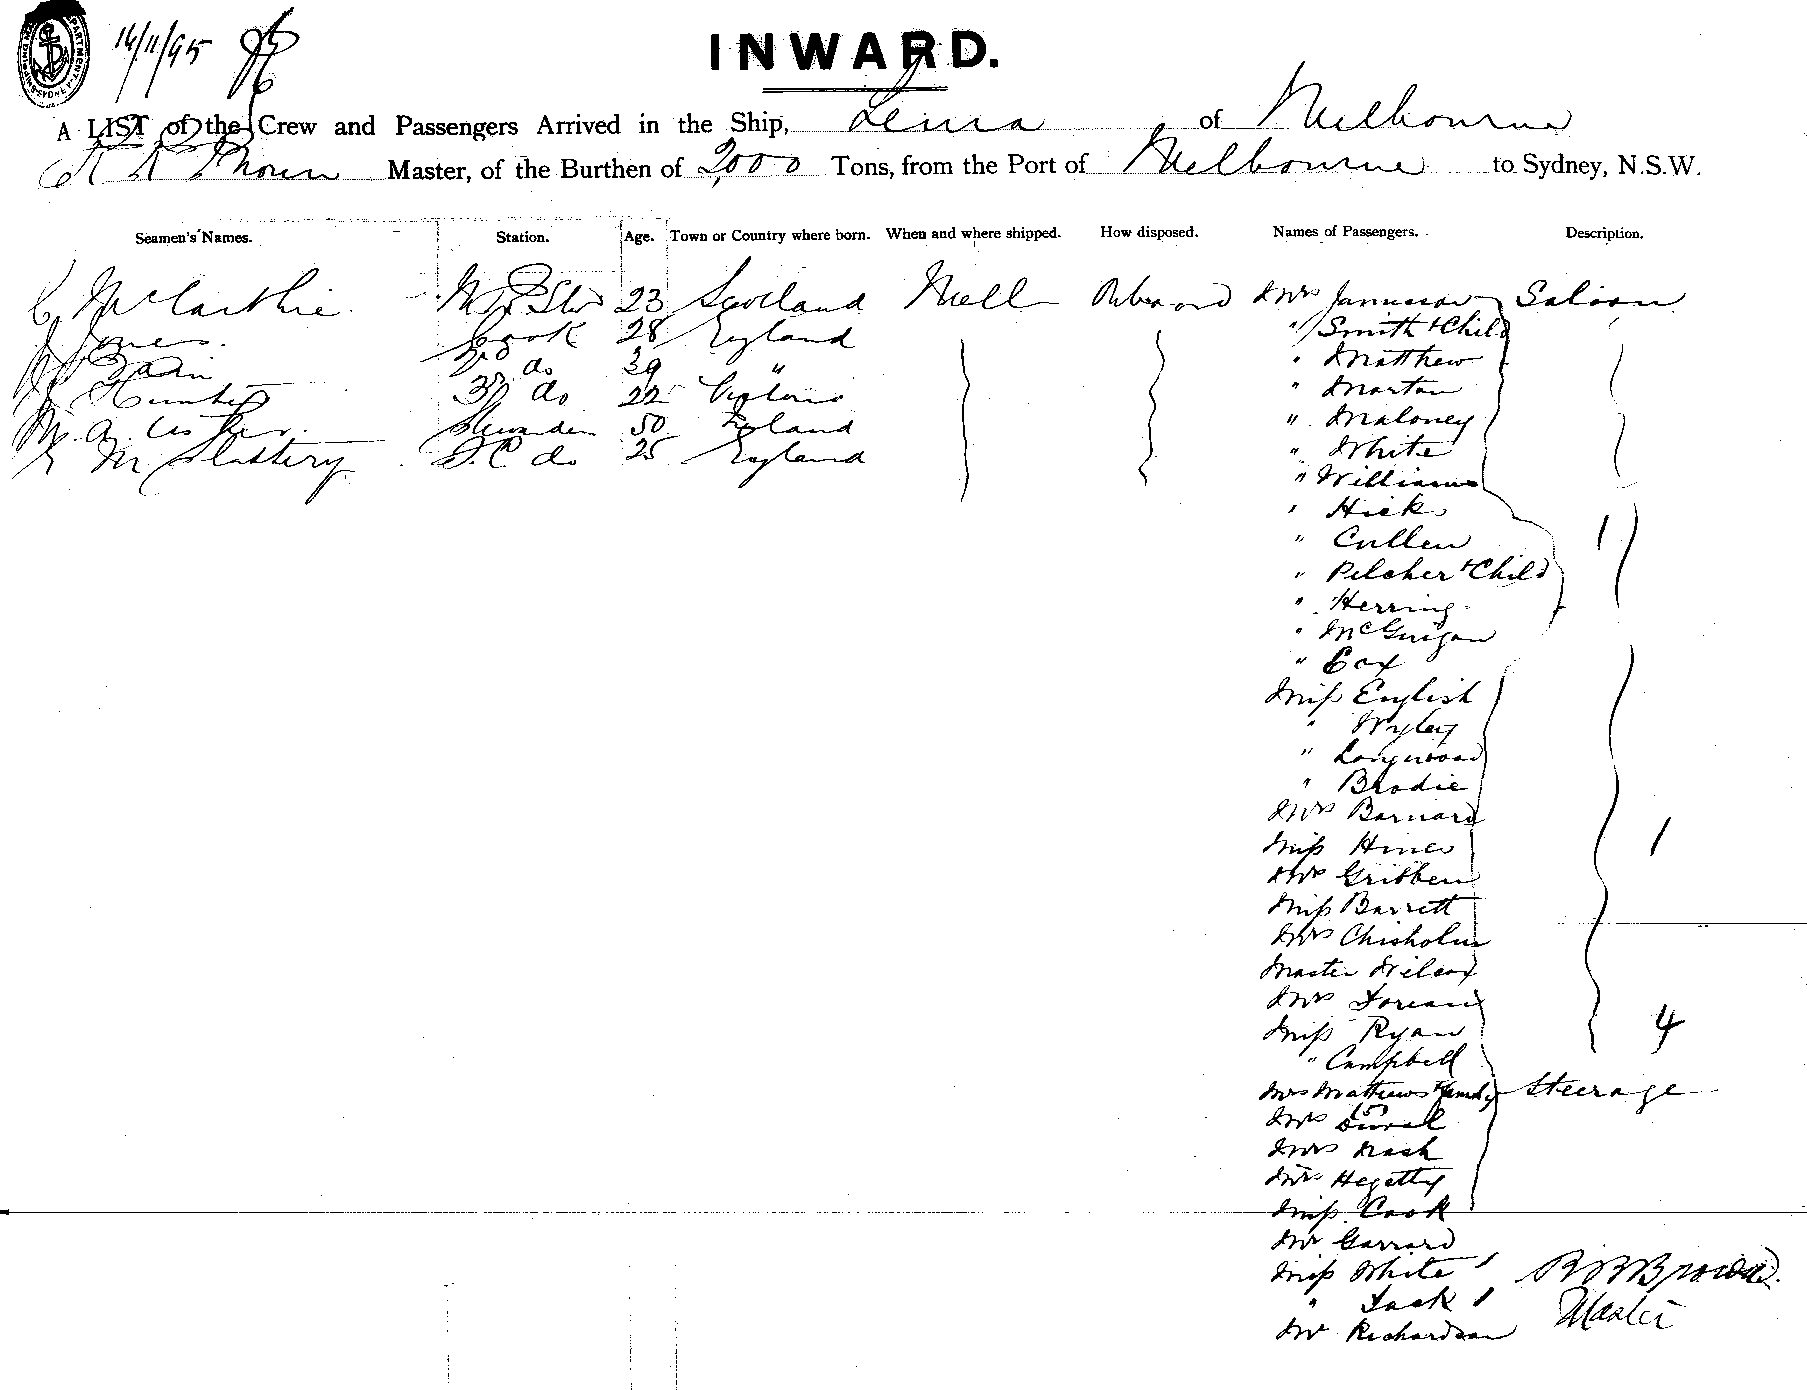 14/11/95
INWARD.
A LIST of the Crew and Passengers Arrived in the Ship, of Melbourne
Master, of the Burthen of 2,000 Tons, from the Port of Melbourne to Sydney, N.S.W.
Seamen's Names. Station. Age. Town or Country where born. When and where shipped. How disposed. Names of Passengers. Description.
McCarthie 23 Scotland Melb Mrs Saloon
Jones Cook 28 England " Smith & Child
2nd do 39 " " Matthew
Hunter 3rd do 22 Victoria " Morton
50 England " Maloney
M Slattery do 25 England " White
" Williams
" Hick
" Cullen
" Pelcher & Child
" Herring
" McGuigan
" Cox
Miss English
" Wyley
" Longwood
" Brodie
Mrs Barnard
Miss Hines
Mrs Gribben
Miss Barrett
Mrs Chisholm
Master Wilcox
Mrs
Miss Ryan
" Campbell
Mrs Mathews & family Steerage
(5)
Mrs Duval
Mrs Nash
Mrs Hegetty
Miss Cook
Mr Garrard
Miss White
" Jack
Mr Richardson
R B Brown
Master
1
1
4